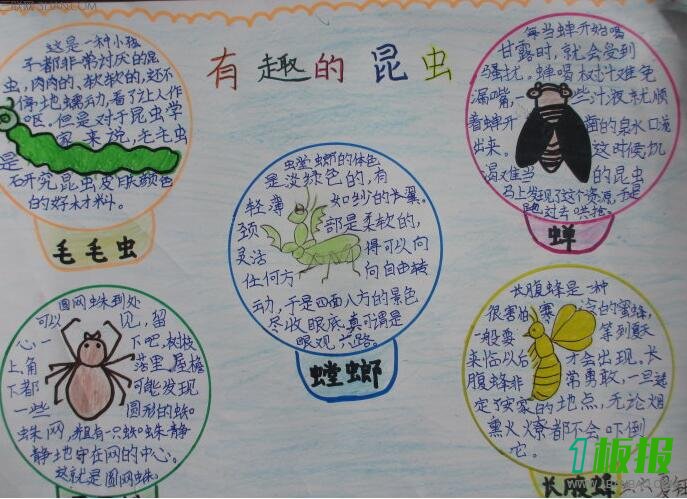 有趣的昆虫
这是一种小孩
子都非常讨厌的昆
虫,肉肉的、软软的,还不
停地蠕动,看了让人作
呕。但是对于昆虫学
家来说,毛毛虫
是
研究昆虫皮肤颜色
的好材料。
毛毛虫
每当蝉开始喝
甘露时,就会受到
骚扰。蝉喝树汁难免
漏嘴,一些汁液就顺
着蝉开凿的泉水口流
出来。这时候饥
渴难当的昆虫
马上发现了这个资源,于是
跑过去哄抢。
蝉
螳螂的体色
是淡绿色的,有
轻薄如纱的长翼。
颈部是柔软的,
灵活得可以向
任何方向自由转
动,于是四面八方的景色
尽收眼底,真可谓是
眼观六路。
螳螂
圆网蛛到处
可以见,留
心一下吧,树枝
上角落里,屋檐
下都可能发现
一些圆形的蛛
蛛网,并且有一只蜘蛛静
静地守在网的中心。
这就是圆网蛛。
长腹蜂是一种
很害怕寒冷的蜜蜂,
一般要等到夏天
来临以后才会出现。长
腹蜂非常勇敢,一旦选
定了安家的地点,无论烟
熏火燎都不会吓倒
它。
长腹蜂
1板报